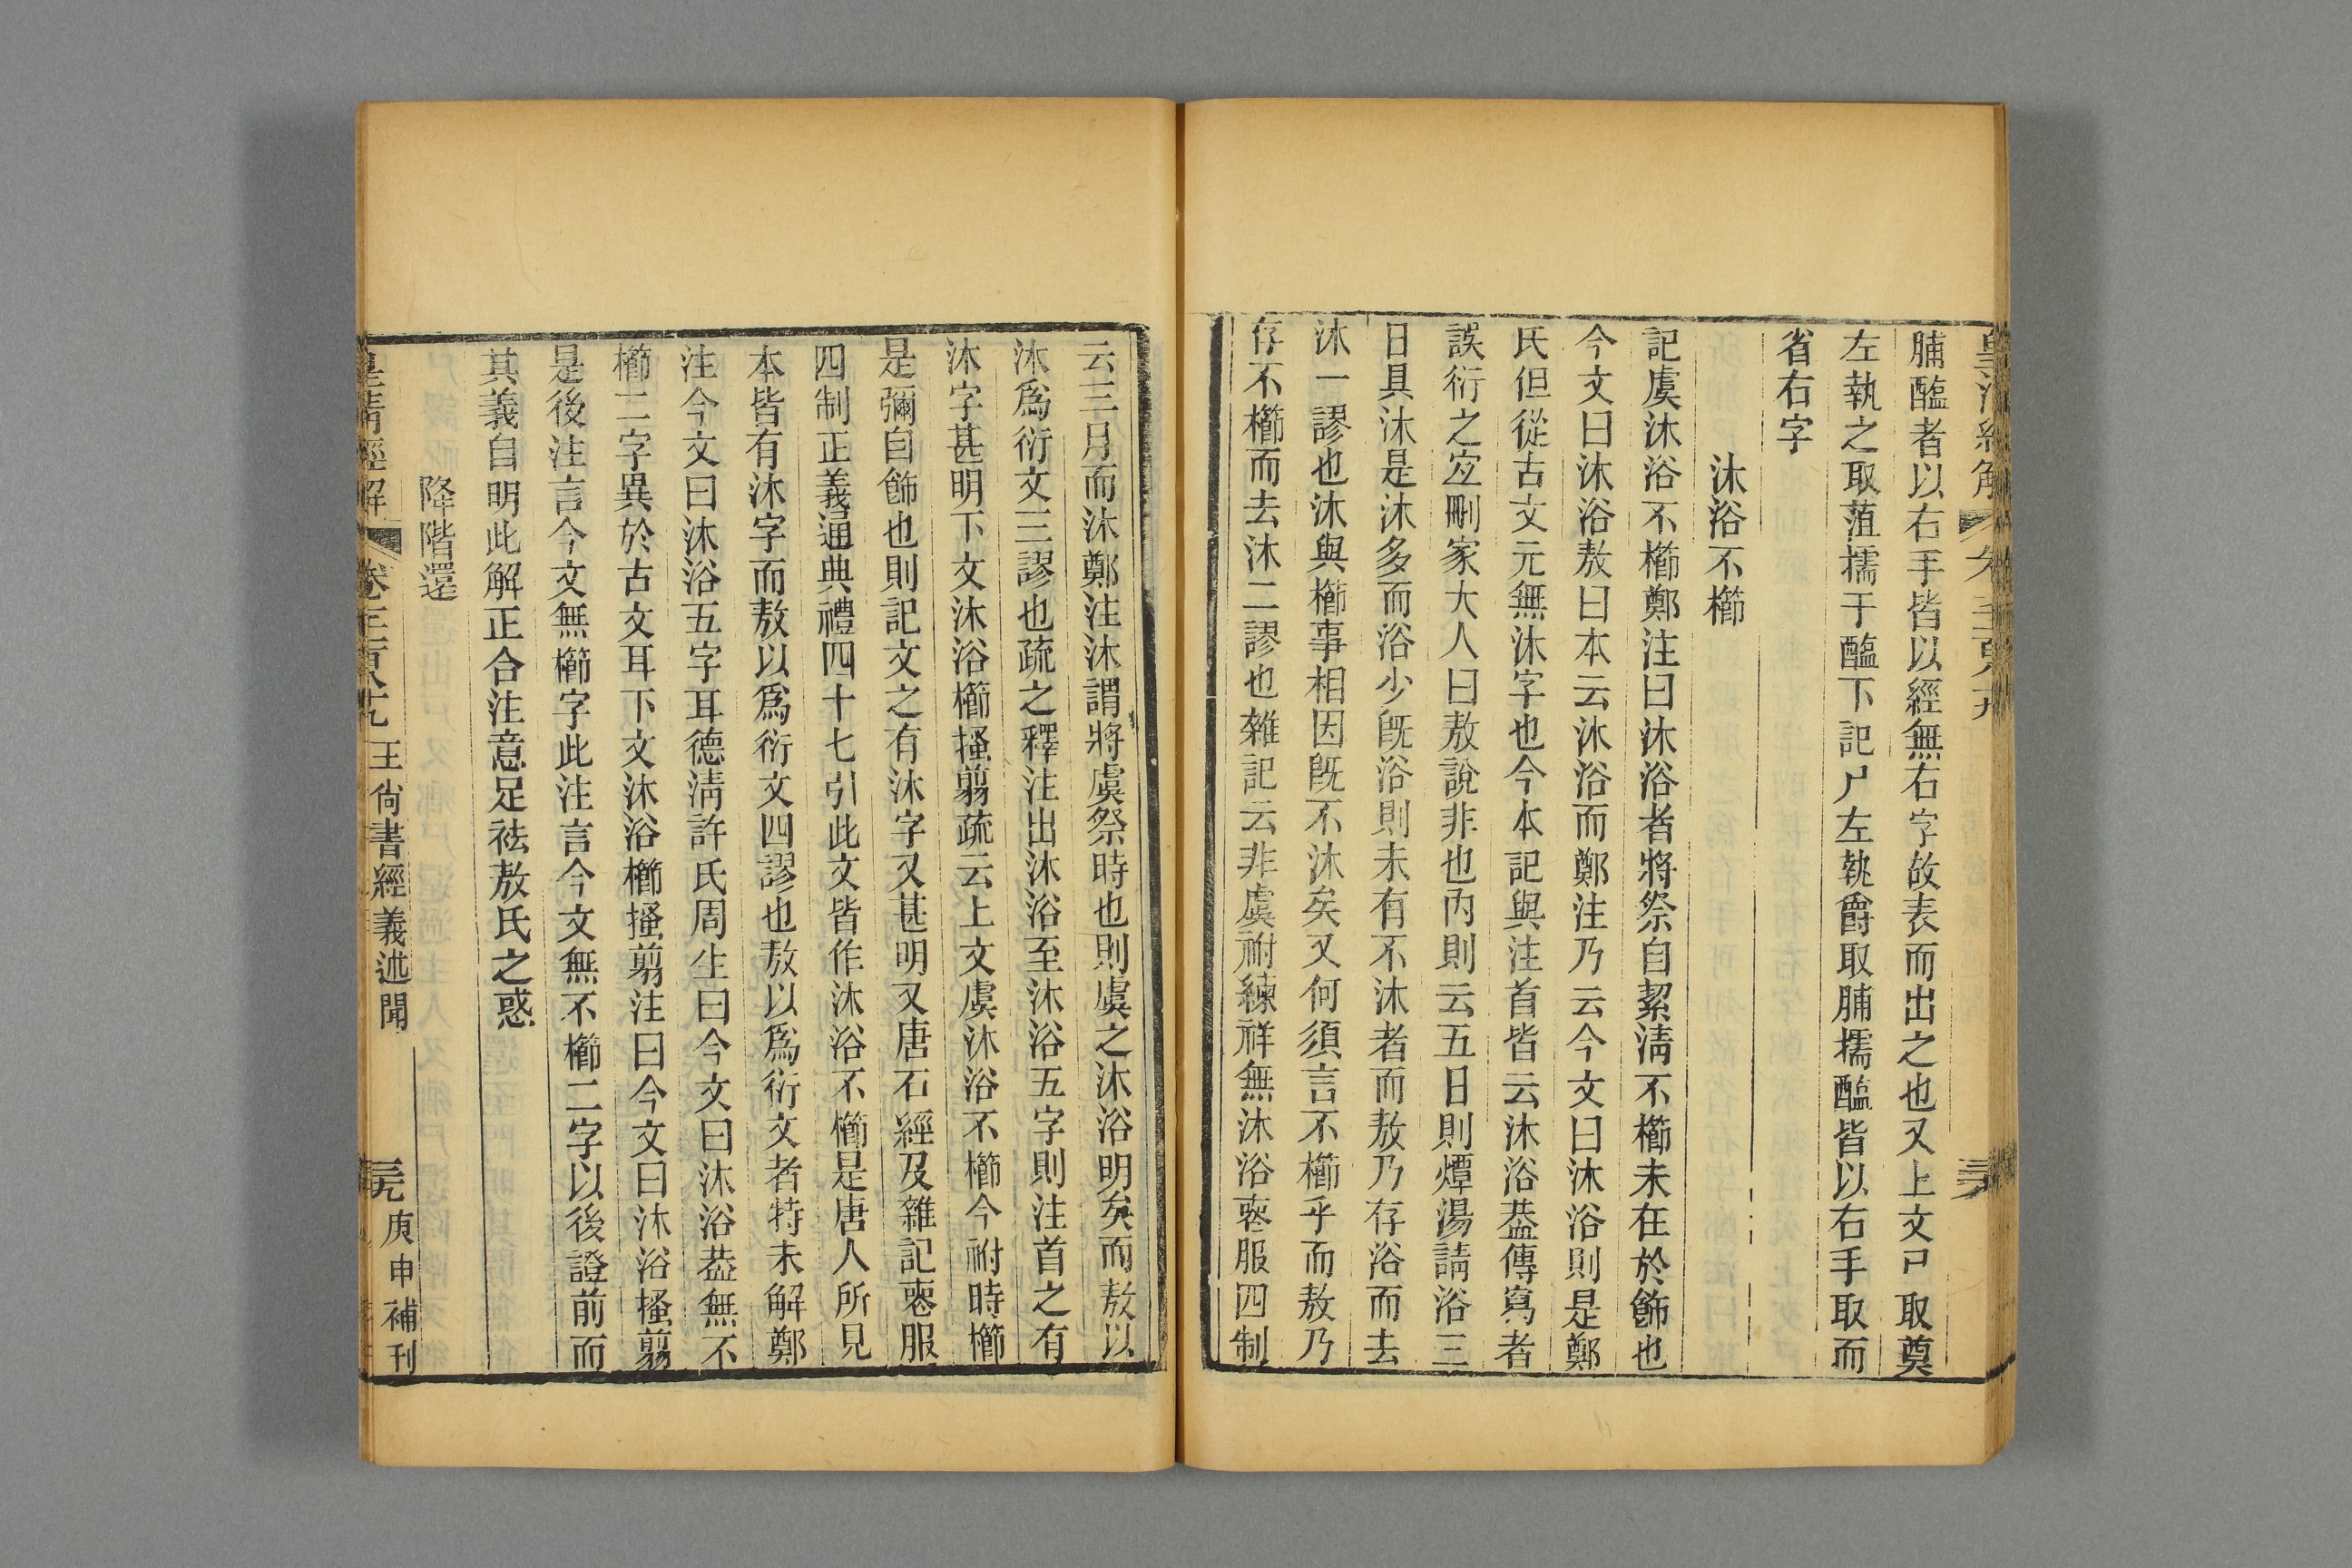 脯醢者以右手皆以經無右字故表而出之也又上文尸取奠
左執之取菹擩于醢下記尸左執爵取脯擩醢皆以右手取而
省右字
沐浴不櫛
記虞沐浴不櫛鄭注曰沐浴者將祭自絜淸不櫛未在於飾也
今文曰沐浴敖曰本云沐浴而鄭注乃云今文曰沐浴則是鄭
氏但從古文元無沐字也今本記與注首皆云沐浴葢傳寫者
誤衍之宐刪家大人曰敖說非也內則云五日則燂湯請浴三
日具沐是沐多而浴少旣浴則未有不沐者而敖乃存浴而去
沐一謬也沐與櫛事相因旣不沐矣又何須言不櫛乎而敖乃
存不櫛而去沐二謬也雜記云非虞祔練祥無沐浴喪服四制
云三月而沐鄭注沐謂將虞祭時也則虞之沐浴明矣而敖以
沐爲衍文三謬也疏之釋注出沐浴至沐浴五字則注首之有
沐字甚明下文沐浴櫛搔翦疏云上文虞沐浴不櫛今祔時櫛
是彌自飾也則記文之有沐字又甚明又唐石經及雜記喪服
四制正義通典禮四十七引此文皆作沐浴不櫛是唐人所見
本皆有沐字而敖以爲衍文四謬也敖以爲衍文者特未解鄭
注今文曰沐浴五字耳德淸許氏周生曰今文曰沐浴葢無不
櫛二字異於古文耳下文沐浴櫛搔翦注曰今文曰沐浴搔翦
是後注言今文無櫛字此注言今文無不櫛二字以後證前而
其義自明此解正合注意足袪敖氏之惑
降階還
皇清經解 卷 王尙書經義述聞 庚申補刊